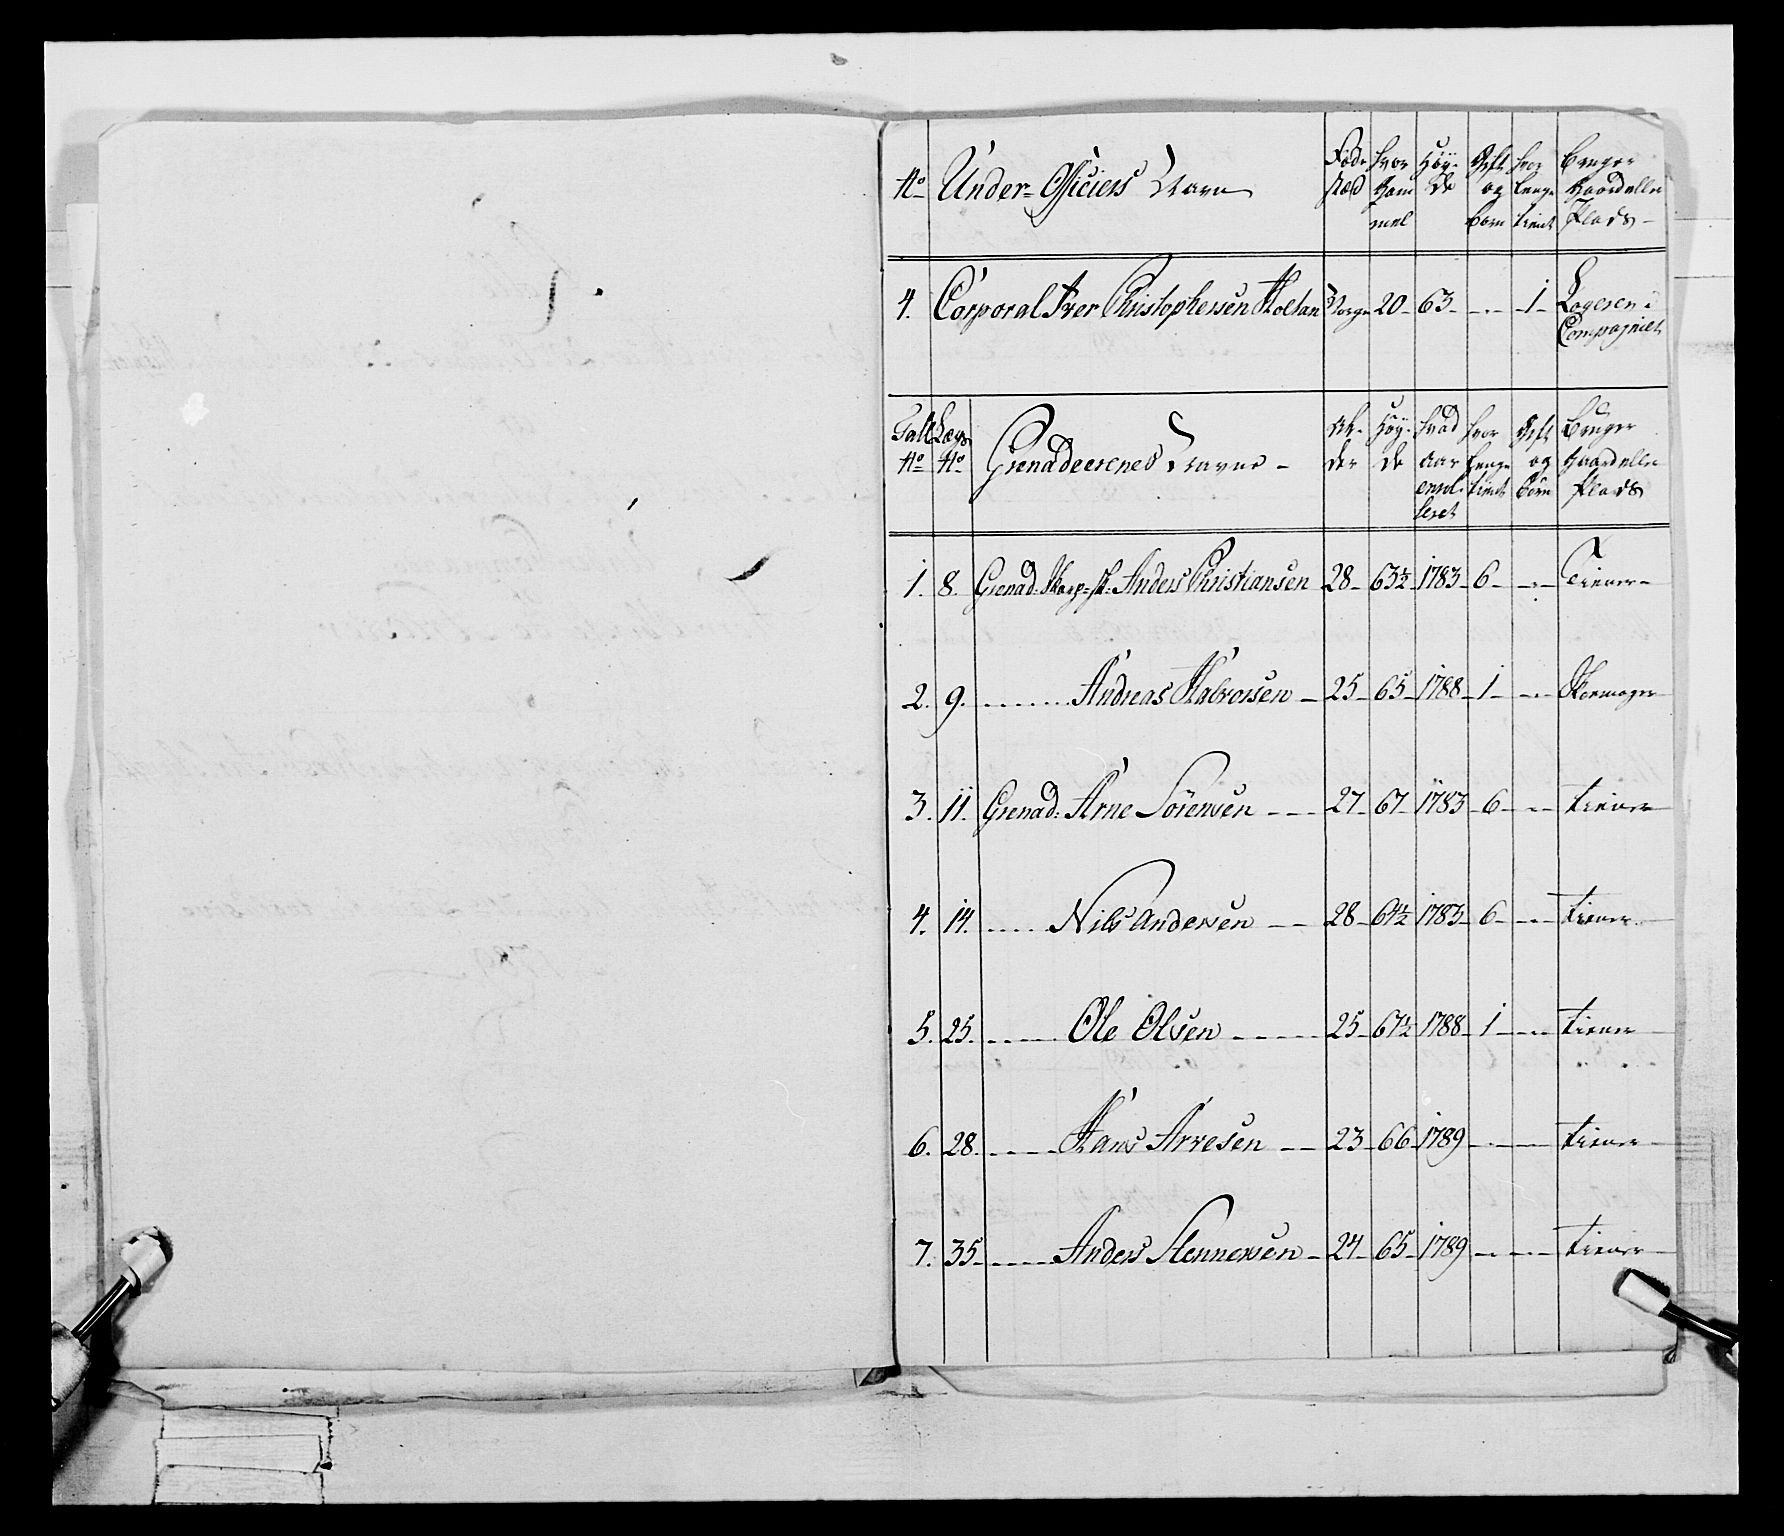 No Under-Officiers Navne Føde stæd hvor Gammel Høyde Gift og børn hvor lenge tient bruger Gaard eller Plads
4. Corporal Iver Christophersen Holtan Norge 20 63 1 Logeren i Compagniet
Tall No Lægs No Grenadeerenes Navne Alder Høyde hvad aar enrulleret hvor lenge tient Gift og børn Bruger Gaard eller Plads
1. 8. Grenad: Korp: Anders Christiansen 28 63½ 1783 6 Tiener
2. 9. Andreas Halvorsen 25 65 1788 1 Skomager
3. 11. Grenad: Arne Sörensen 27 67 1783 6 tiener
4. 14. Nils Andersen 28 64½ 1783 6 tiener
5. 25. Ole Olsen 25 67½ 1788 1 tiener
6. 28. Hans Arvesen 23 66 1789 tiener
7. 35. Anders Stennersen 24 65 1789 tiener